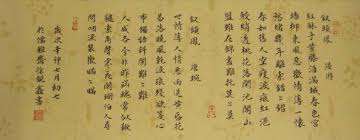 釵頭鳳 陸游
紅酥手黃縢酒滿城春色宮
牆柳東風惡歡情薄一懷
愁緒幾年離索錯錯錯
春如舊人空瘦淚痕紅浥
鮫綃透桃花落閑池閣山
盟雖在錦書難託莫莫莫
釵頭鳳 唐琬
世情薄人情惡雨送黃昏花
易落曉風乾淚痕殘欲箋心
事獨語斜闌難難難
人成各今非昨病魂常似秋
千索角聲寒夜闌珊怕人尋
問咽淚裝歡瞞瞞瞞
歲次辛卯七月初七
於儒雅齋徐鑫書